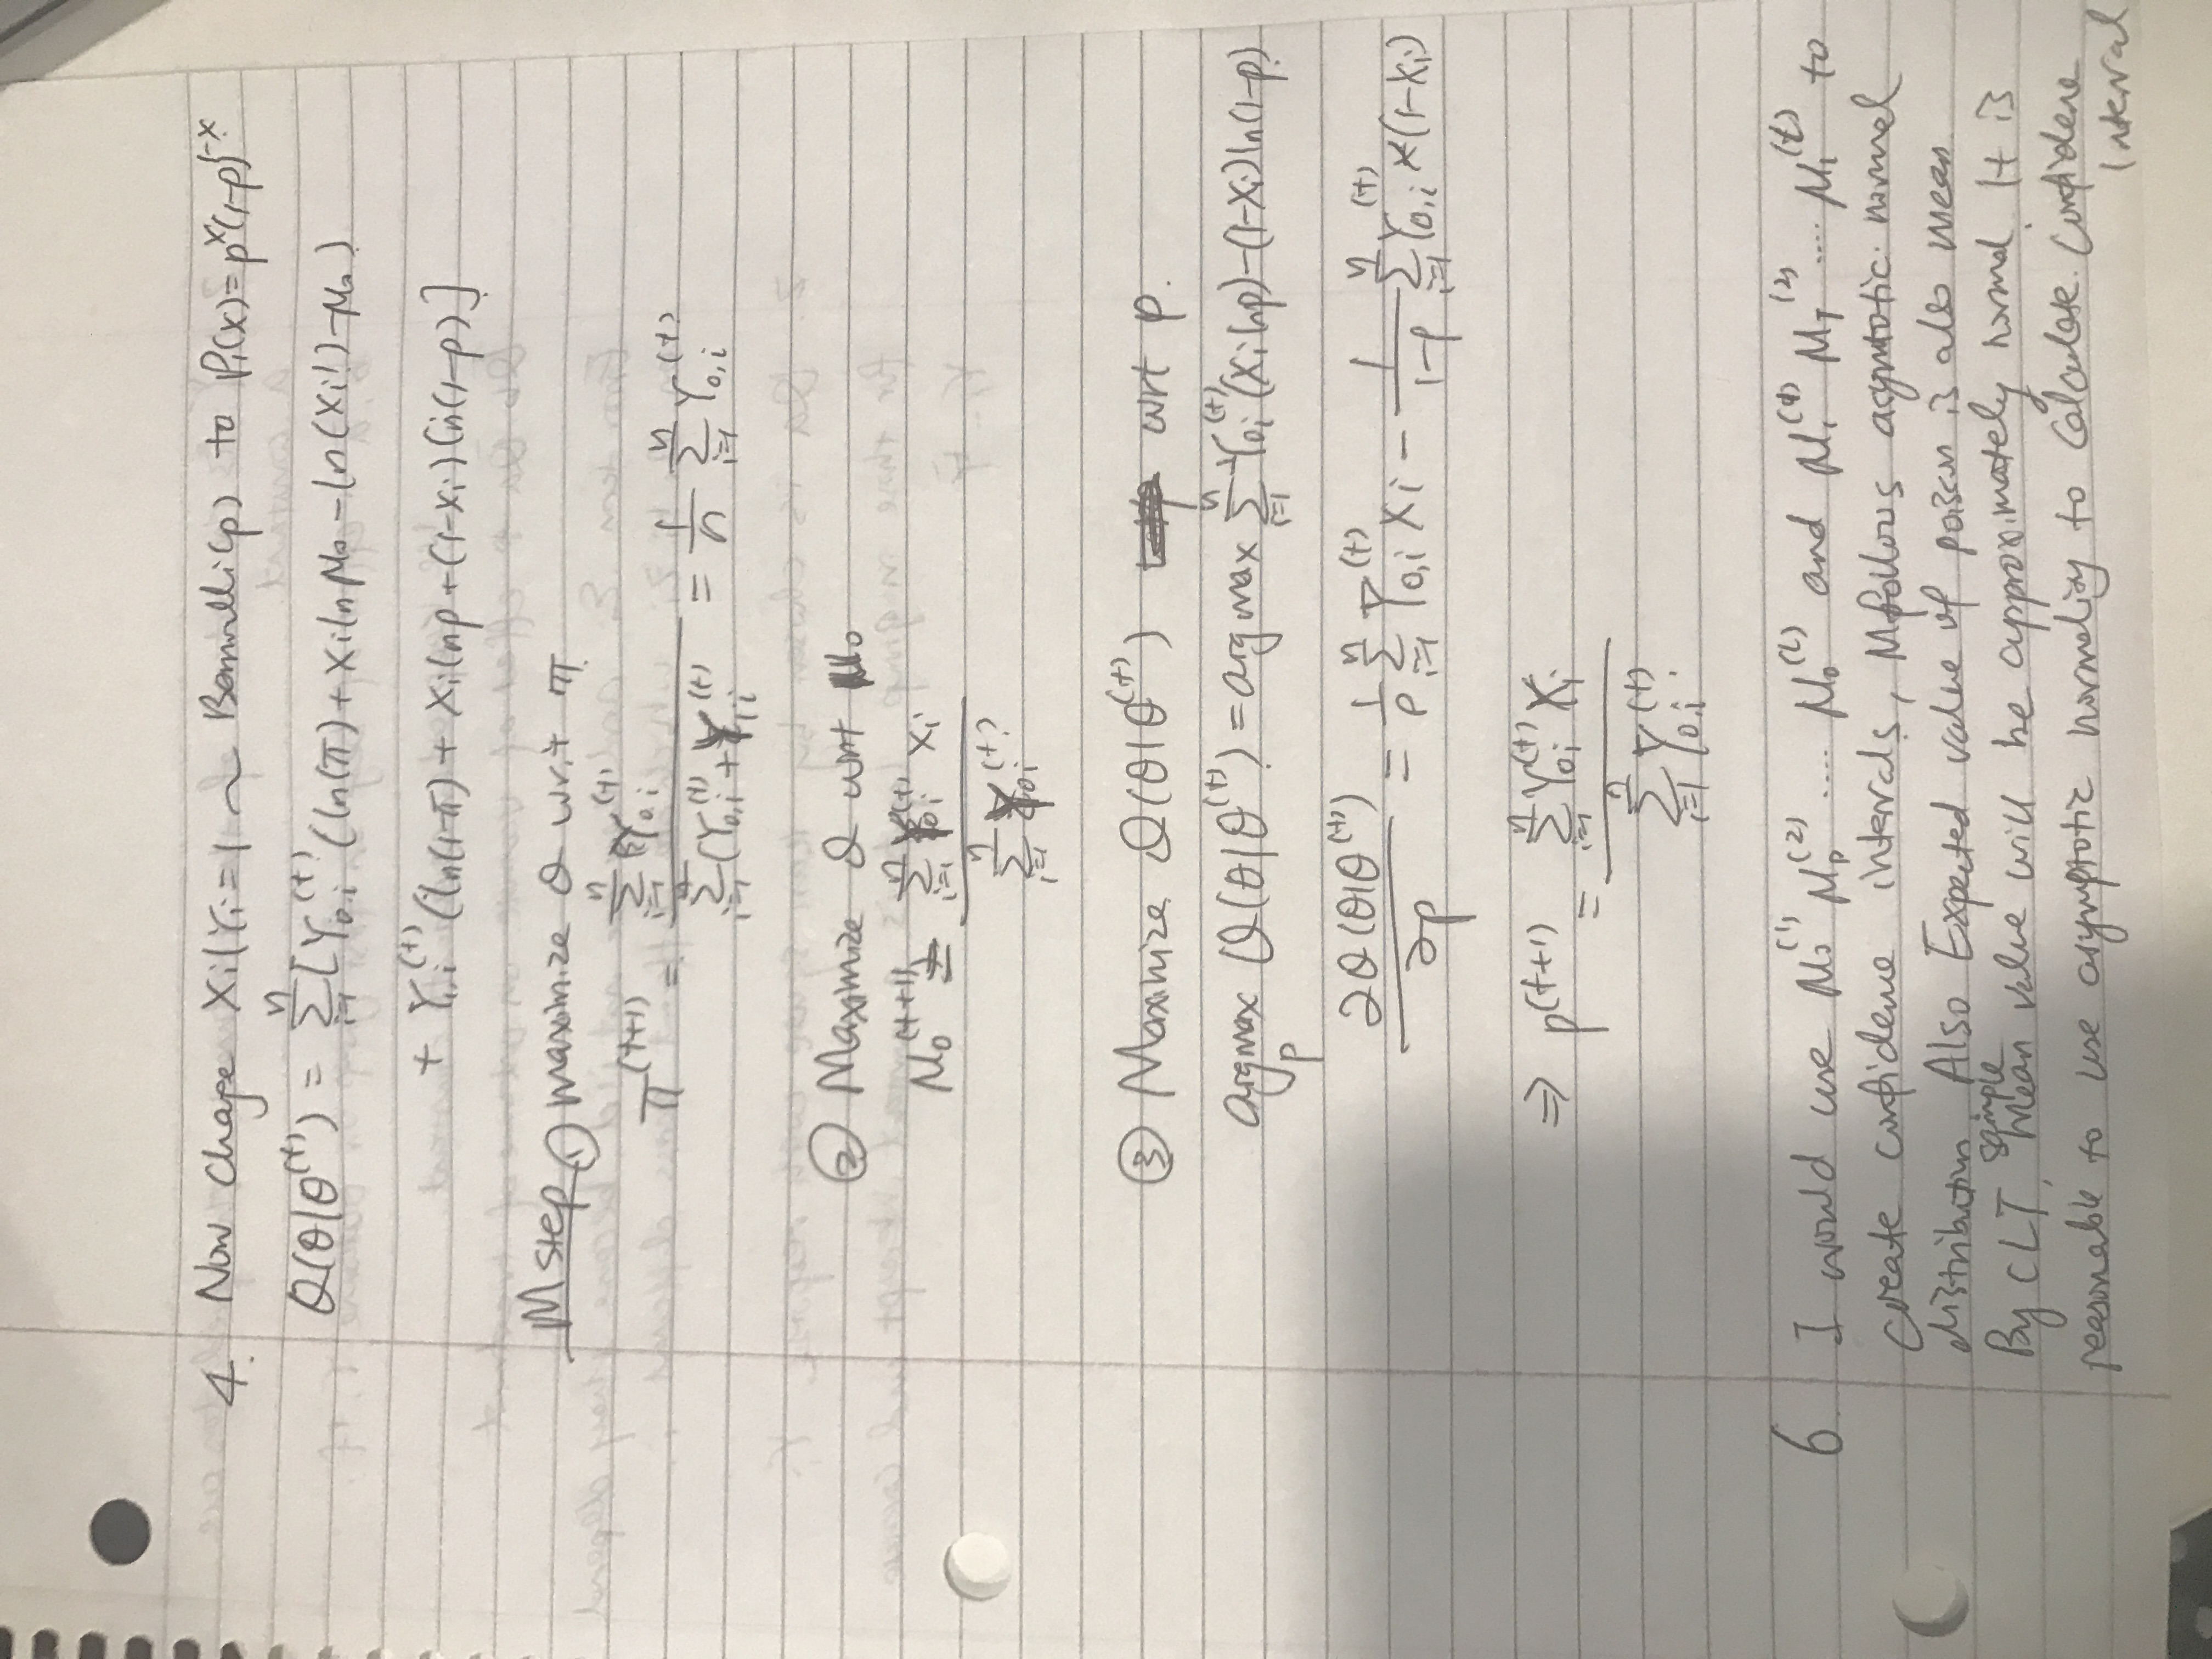 4. Now change Xi|Yi=1 ~ Bernoulli(p) to P₁(x)=p^x(1-p)^1-x
Q(θ|θ^(t)) = Σ_{i=1}^n [Y_{0,i}^(t) (ln(π) + Xi ln μ₀ - ln(Xi!) - μ₀)
+ Y_{1,i}^(t) (ln(1-π) + Xi ln p + (1-Xi) ln(1-p)]
M step ① maximize Q wrt π
π^(t+1) = Σ_{i=1}^n Y_{0,i}^(t) / Σ_{i=1}^n (Y_{0,i}^(t) + Y_{1,i}^(t) = 1/n Σ_{i=1}^n Y_{0,i}^(t)
② Maximize Q wrt μ₀
μ₀^(t+1) = Σ_{i=1}^n Y_{0,i}^(t) Xi / Σ_{i=1}^n Y_{0,i}^(t)
③ Maximize Q(θ|θ^(t)) wrt p.
argmax_p Q(θ|θ^(t)) = argmax Σ_{i=1}^n Y_{0,i}^(t) (Xi ln p) - (1-Xi) ln(1-p)
∂Q(θ|θ^(t)) / ∂p = 1/p Σ_{i=1}^n Y_{0,i}^(t) Xi - 1/(1-p) Σ_{i=1}^n Y_{0,i}^(t) (1-Xi)
⇒ p^(t+1) = Σ_{i=1}^n Y_{0,i}^(t) Xi / Σ_{i=1}^n Y_{0,i}^(t)
6. I would use μ₀^(1) μ₀^(2) .... μ₀^(t) and μ₁^(1) μ₁^(2) .... μ₁^(t) to
create confidence intervals, μ follows asymtotic normal
distribution. Also Expected value of poison is also mean.
By CLT, sample mean value will be approximately normal. It is
reasonable to use asymptotic normality to calculate. Confidence
Interval